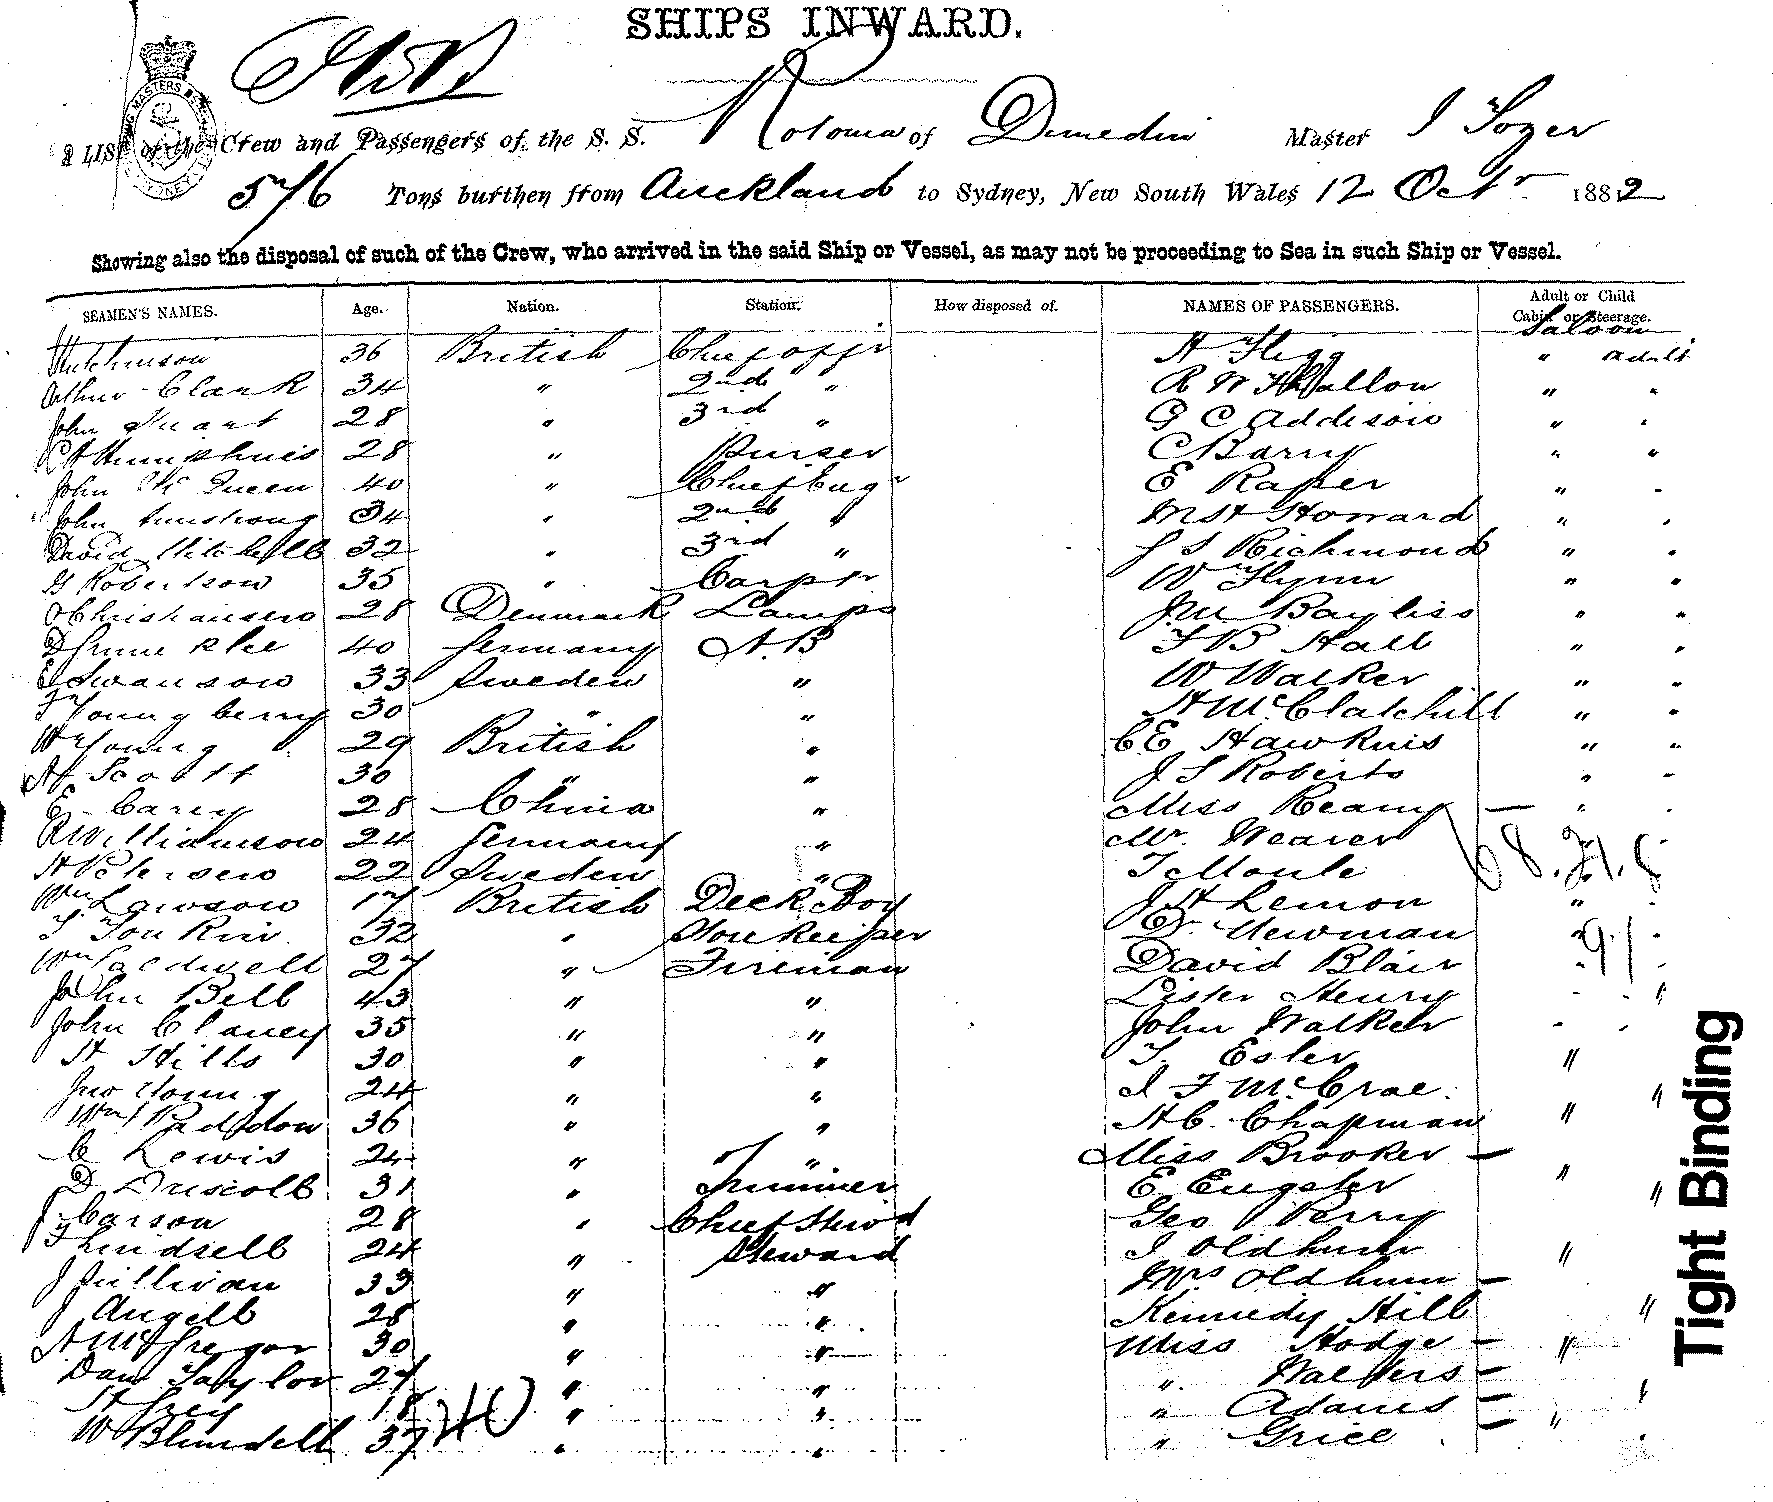 SHIPS INWARD.
A LIST of the Crew and Passengers of the S. S. Rotoma of Dunedin Master J Tozer
576 Tons burthen from Auckland to Sydney, New South Wales 12 Octr 1882
Showing also the disposal of such of the Crew, who arrived in the said Ship or Vessel, as may not be proceeding to Sea in such Ship or Vessel.
SEAMEN'S NAMES. Age. Nation. Station. How disposed of. NAMES OF PASSENGERS. Adult or Child Cabin or Steerage.
Saloon
Hutchinson 36 British Chief offr A Flegg " adult
Arthur Clark 34 " 2nd " R W Fallon " "
John 28 " 3rd " G C Addison " "
C A Humphries 28 " Purser C Barry " "
John McQueen 40 " Chief Eng " E Raper " "
John Armstrong 34 " 2nd " Howard " "
David Mitchell 32 " 3rd " J S Richmond " "
G Robertson 35 " Carptr W Flynn " "
Christiansen 28 Denmark Lamps Bayliss " "
40 Germany A.B F B Hall " "
E Swanson 33 Sweden " W Walker " "
F Youngberry 30 " " A McClatchill " "
Wm Young 29 British " C E Hawkins " "
A Scott 30 " " J S Roberts " "
E Carey 28 China " Miss Reamy — " "
R Williamson 24 Germany " Mr Weaver "
A Petersen 22 Sweden " T Moule "
Wm Lawson 17 British Deck Boy J H Lemon " "
T Tonkin 32 " Storekeeper D. Newman " "
Wm Caldwell 27 " Fireman David Blair " "
John Bell 43 " " Lister Henry " "
John Clancy 35 " " John Walker " "
H Hills 30 " " T. Esler "
Jno Young 24 " " J F McCrae. "
Wm 36 " " H C. Chapman "
C Lewis 24 " " Miss Brooker —
D Driscoll 31 " Trimmer E Engster " "
J Carson 28 " Chief Stewd Geo Perry
F Lindsell 24 " Steward J Oldhum "
J Sullivan 33 " " Mrs Oldhum —
J Angell 28 " " Kennedy Hill "
A McGregor 30 " " Miss Hodge — "
Dan Taylor 27 " " " Walters —
H Grey 18 " " " Adams — "
W Blundell 37 " " " Grice — "
40
68.
91
Tight Binding